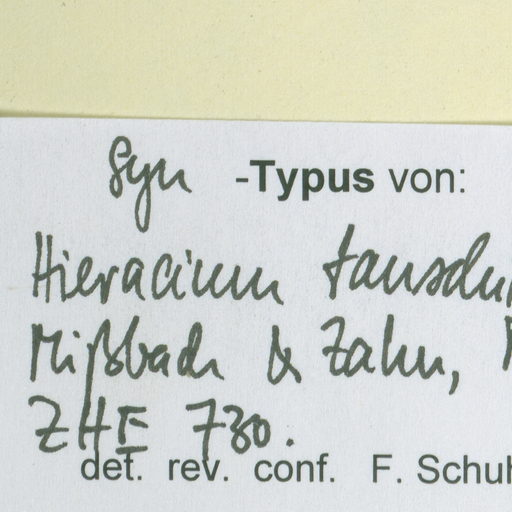 Syn -Typus von:
Hieracium
Mißbach & Zahn,
ZHE 730.
det. rev. conf. F. Schuh